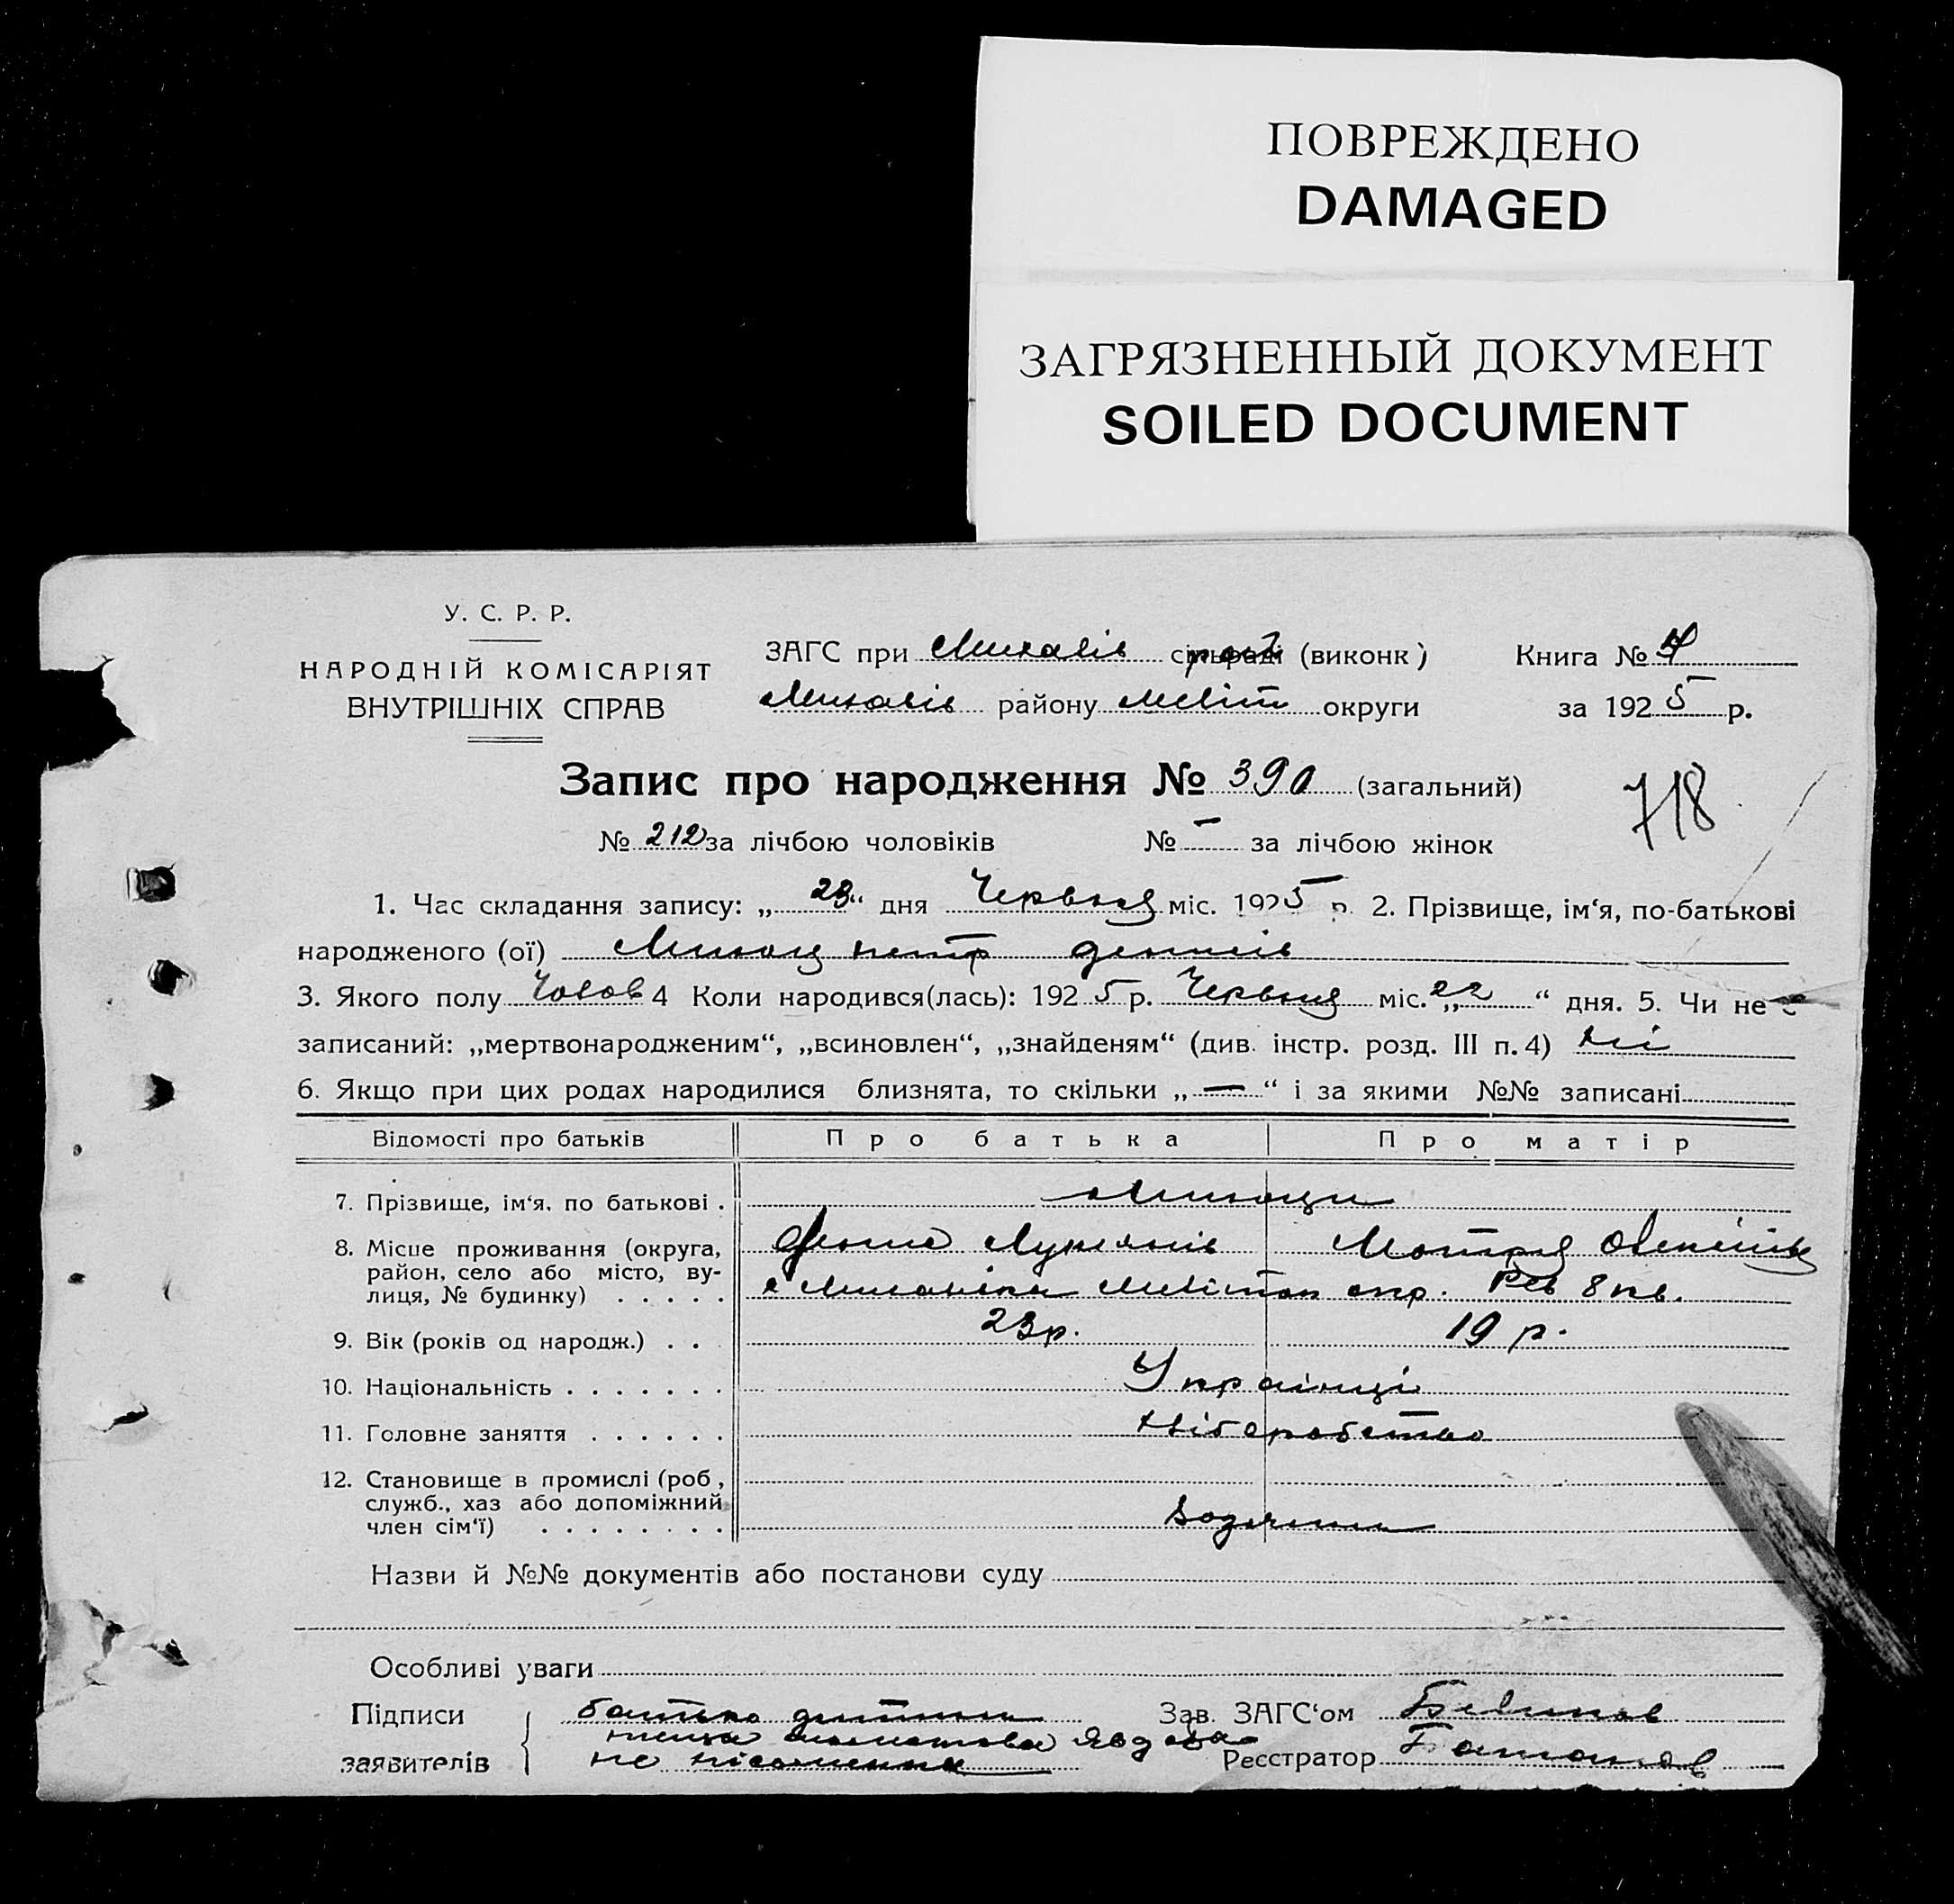 ПОВРЕЖДЕНО
DAMAGED
ЗАГРЯЗНЕННЫЙ ДОКУМЕНТ
SOILED DOCUMENT
У. С. Р. Р.
НАРОДНІЙ КОМІСАРІЯТ
ВНУТРІШНІХ СПРАВ
ЗАГС при сільраді (виконк)
району Меліт округи
Книга № 4
за 1925 р.
Запис про народження № 390 (загальний)
718
№ 212 за лічбою чоловіків № — за лічбою жінок
1. Час складання запису: „23“ дня Червня міс. 1925 р. 2. Прізвище, ім‘я, по-батькові
народженого (ої) петр денисів
3. Якого полу Чолов 4 Коли народився(лась): 1925 р. Червня міс. „22“ дня. 5. Чи не є
записаний: „мертвонародженим“, „всиновлен“, „знайденям“ (див. інстр. розд. III п. 4) ні
6. Якщо при цих родах народилися близнята, то скільки „—“ і за якими №№ записані
Відомості про батьків Про батька Про матір
7. Прізвище, ім‘я, по батькові .
8. Місце проживання (округа, район, село або місто, вулиця, № будинку) . . . . . Денис Лукянів Мотря
Мелітоп окр. 8 кв.
9. Вік (років од народж.) . . . 23 р. 19 р.
10. Національність . . . . . . . Українці
11. Головне заняття . . . . . . Хліборобство
12. Становище в промислі (роб,
служб., хаз або допоміжний
член сім‘ї) . . . . . . . .
Назви й №№ документів або постанови суду
Особливі уваги
Підписи заявителів батько дитини
не
Зав. ЗАГС‘ом
Реєстратор